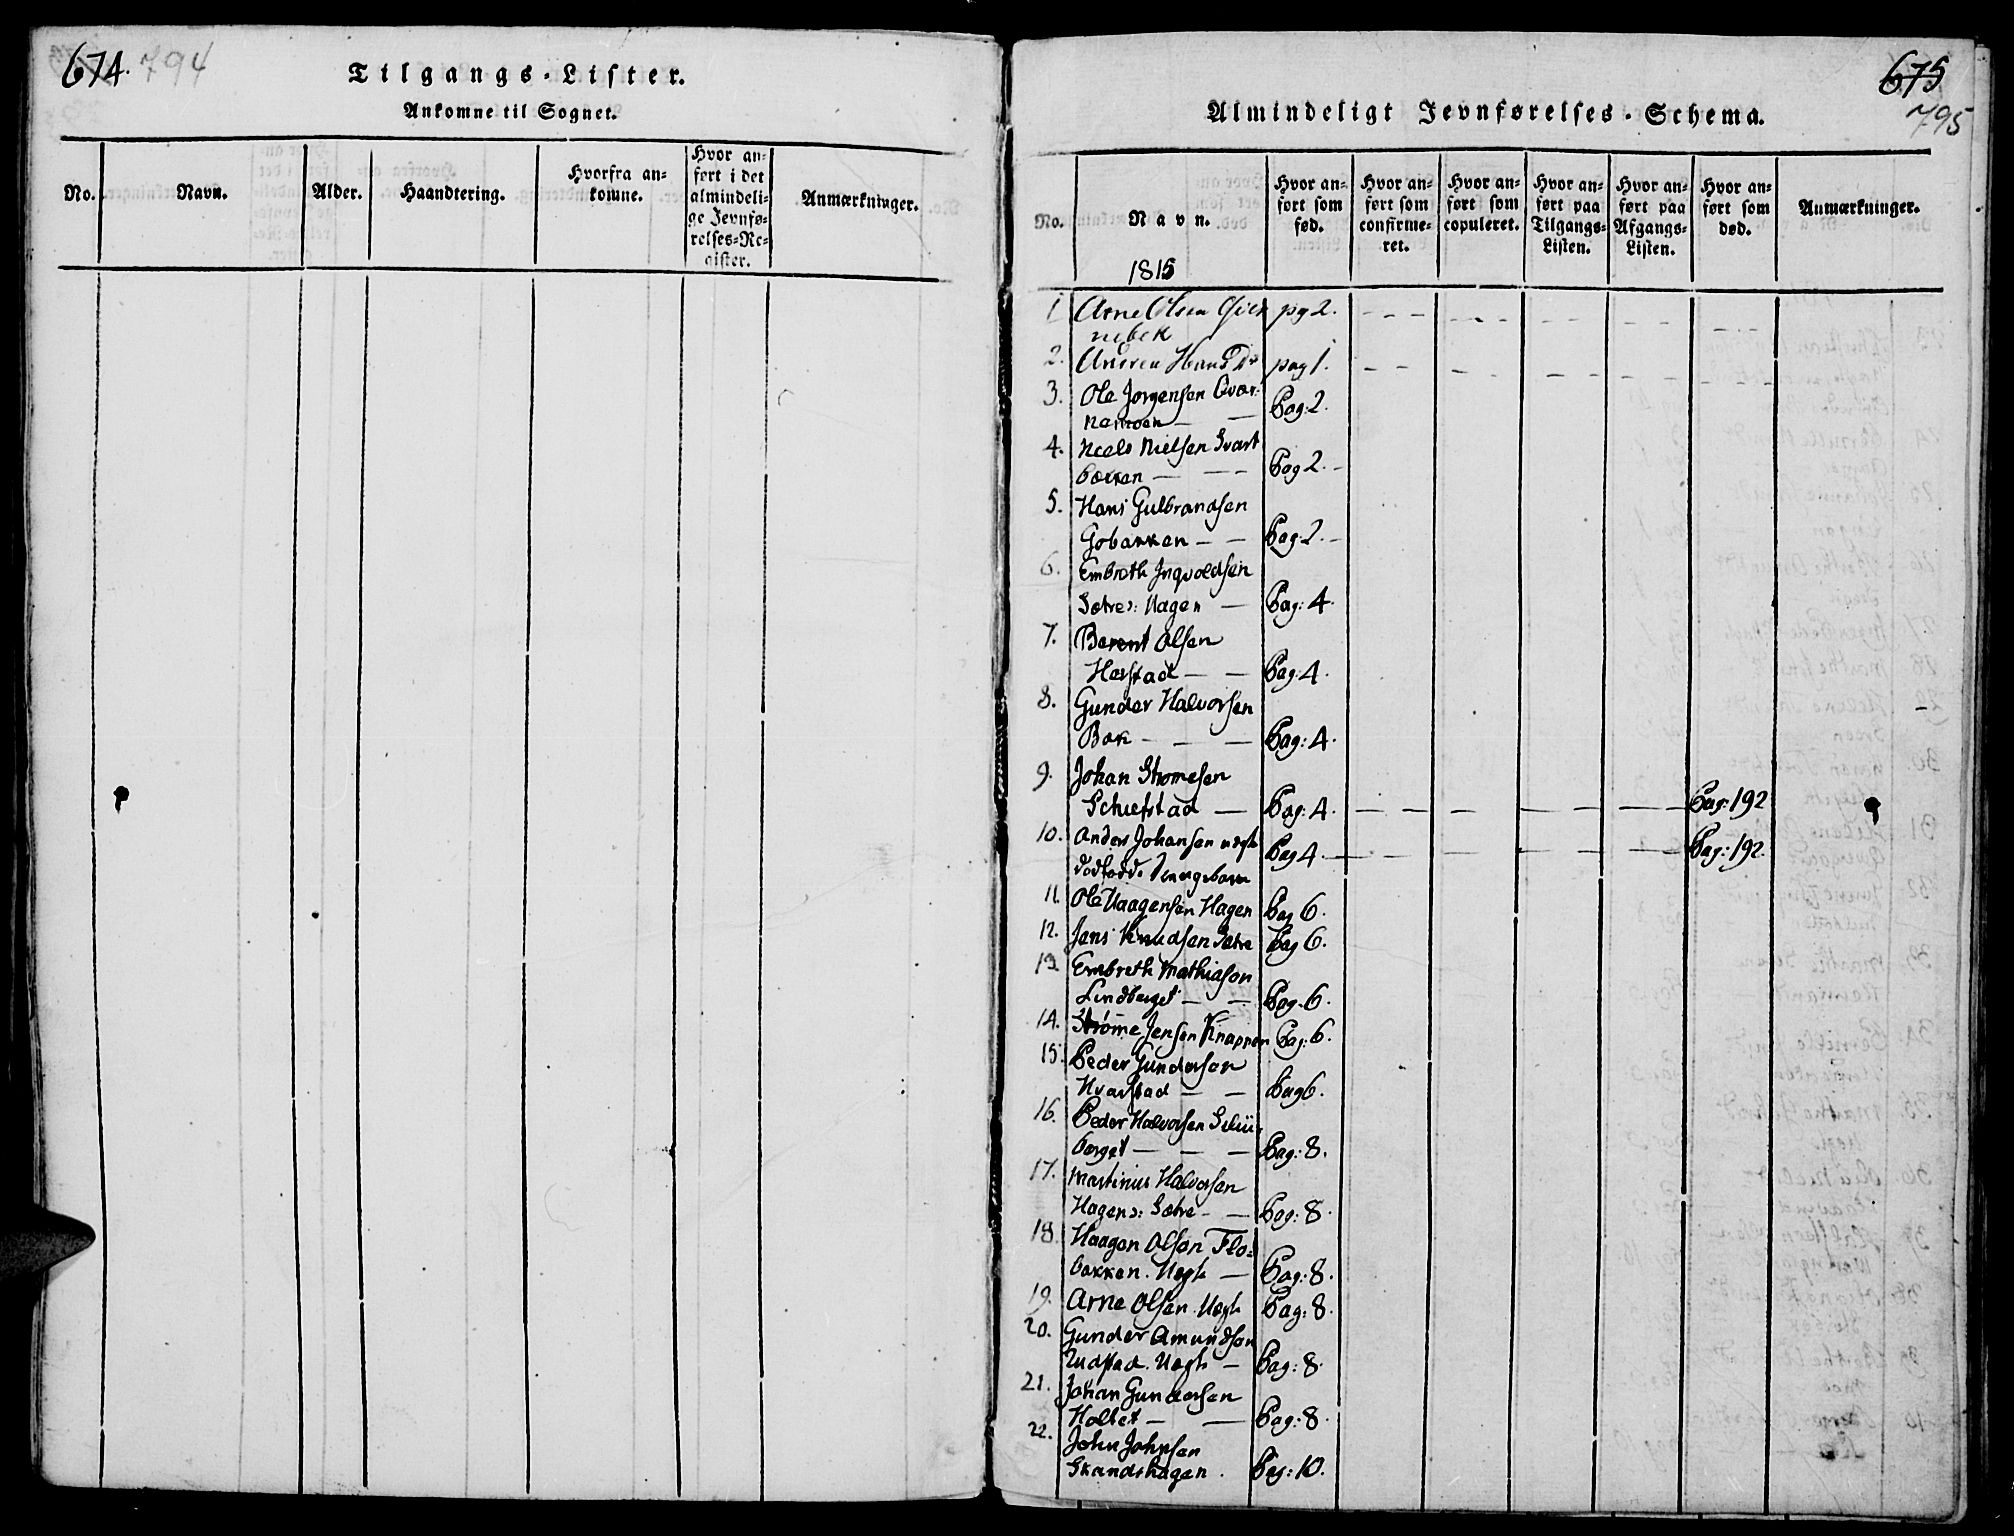 674. 794
Tilgangs-Lister.
Ankomne til Sognet.
No. Navn. Alder. Haandtering. Hvorfra ankomne. Hvor anført i det almindelige Jevnførelses-Register. Anmærkninger.
675
795
Almindeligt Jevnførelses-Schema.
No. Navn. Hvor anført som fød. Hvor anført som confirmeret. Hvor anført som copuleret. Hvor anført paa Tilgangs-Listen. Hvor anført paa Afgangs-Listen. Hvor anført som død. Anmærkninger.
1815
1 Arne Olsen pg 2.
nebek
2. Hans Dr pag 1.
3. Ole Jørgensen Qvær-
nemoen — Pag: 2.
4. Neels Nielsen Svart
backen — Pag 2.
5. Hans Gulbrandsen
Gobakken — Pag: 2.
6. Embreth Ingvoldsen
Sætres: Hagen — Pag: 4.
7. Berent Olsen
Harstad — Pag: 4.
8. Gunder Halvorsen
Bæk — Pag: 4.
9. Johan Strømesen
Schiefstad — Pag: 4. Pag: 192
10. Anders Johansen uægte
dødfødde Pag 4. Pag: 192.
11. Ole Haagensen Hagen Pag 6.
12. Jens Knudsen Sætre Pag 6.
13. Embreth Mathiasen
Lindberget — Pag. 6.
14. Strøme Jensen Knappen Pag: 6.
15. Peder Gundersen
Kvarstad — Pag 6.
16. Peder Halvorsen
berget — Pag: 8.
17. Martinus Halvorsen
Hagens: Sætre — Pag: 8.
18. Haagen Olsen Flo-
bakken. Uægte — Pag: 8.
19. Arne Olsen. Uægte Pag: 8.
20. Gunder Amundsen
Rudstad. Uægte — Pag: 8.
21. Johan Gundersen
Holtet — Pag: 8.
22. John Johnsen
Skandshagen. Pag: 10.